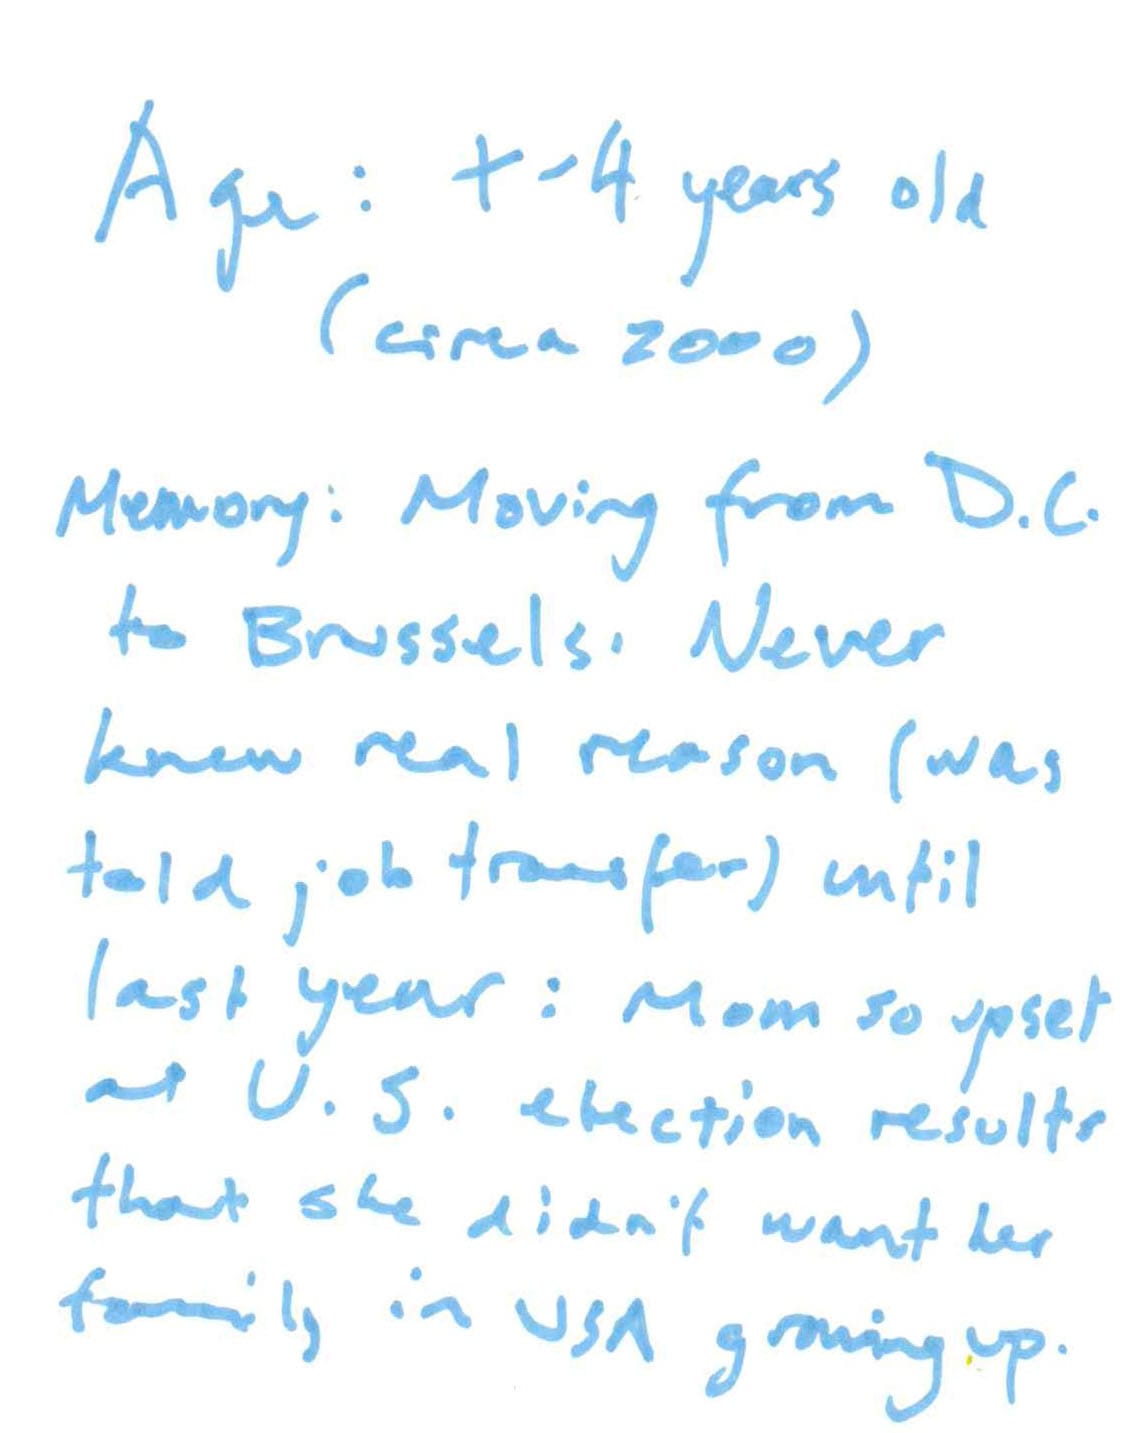 Age: +-4 years old
(circa 2000)
Memory: Moving from D.C.
to Brussels. Never
knew real reason (was
told job transfer) until
last year: Mom so upset
at U.S. election results
that she didn't want her
family in USA growing up.